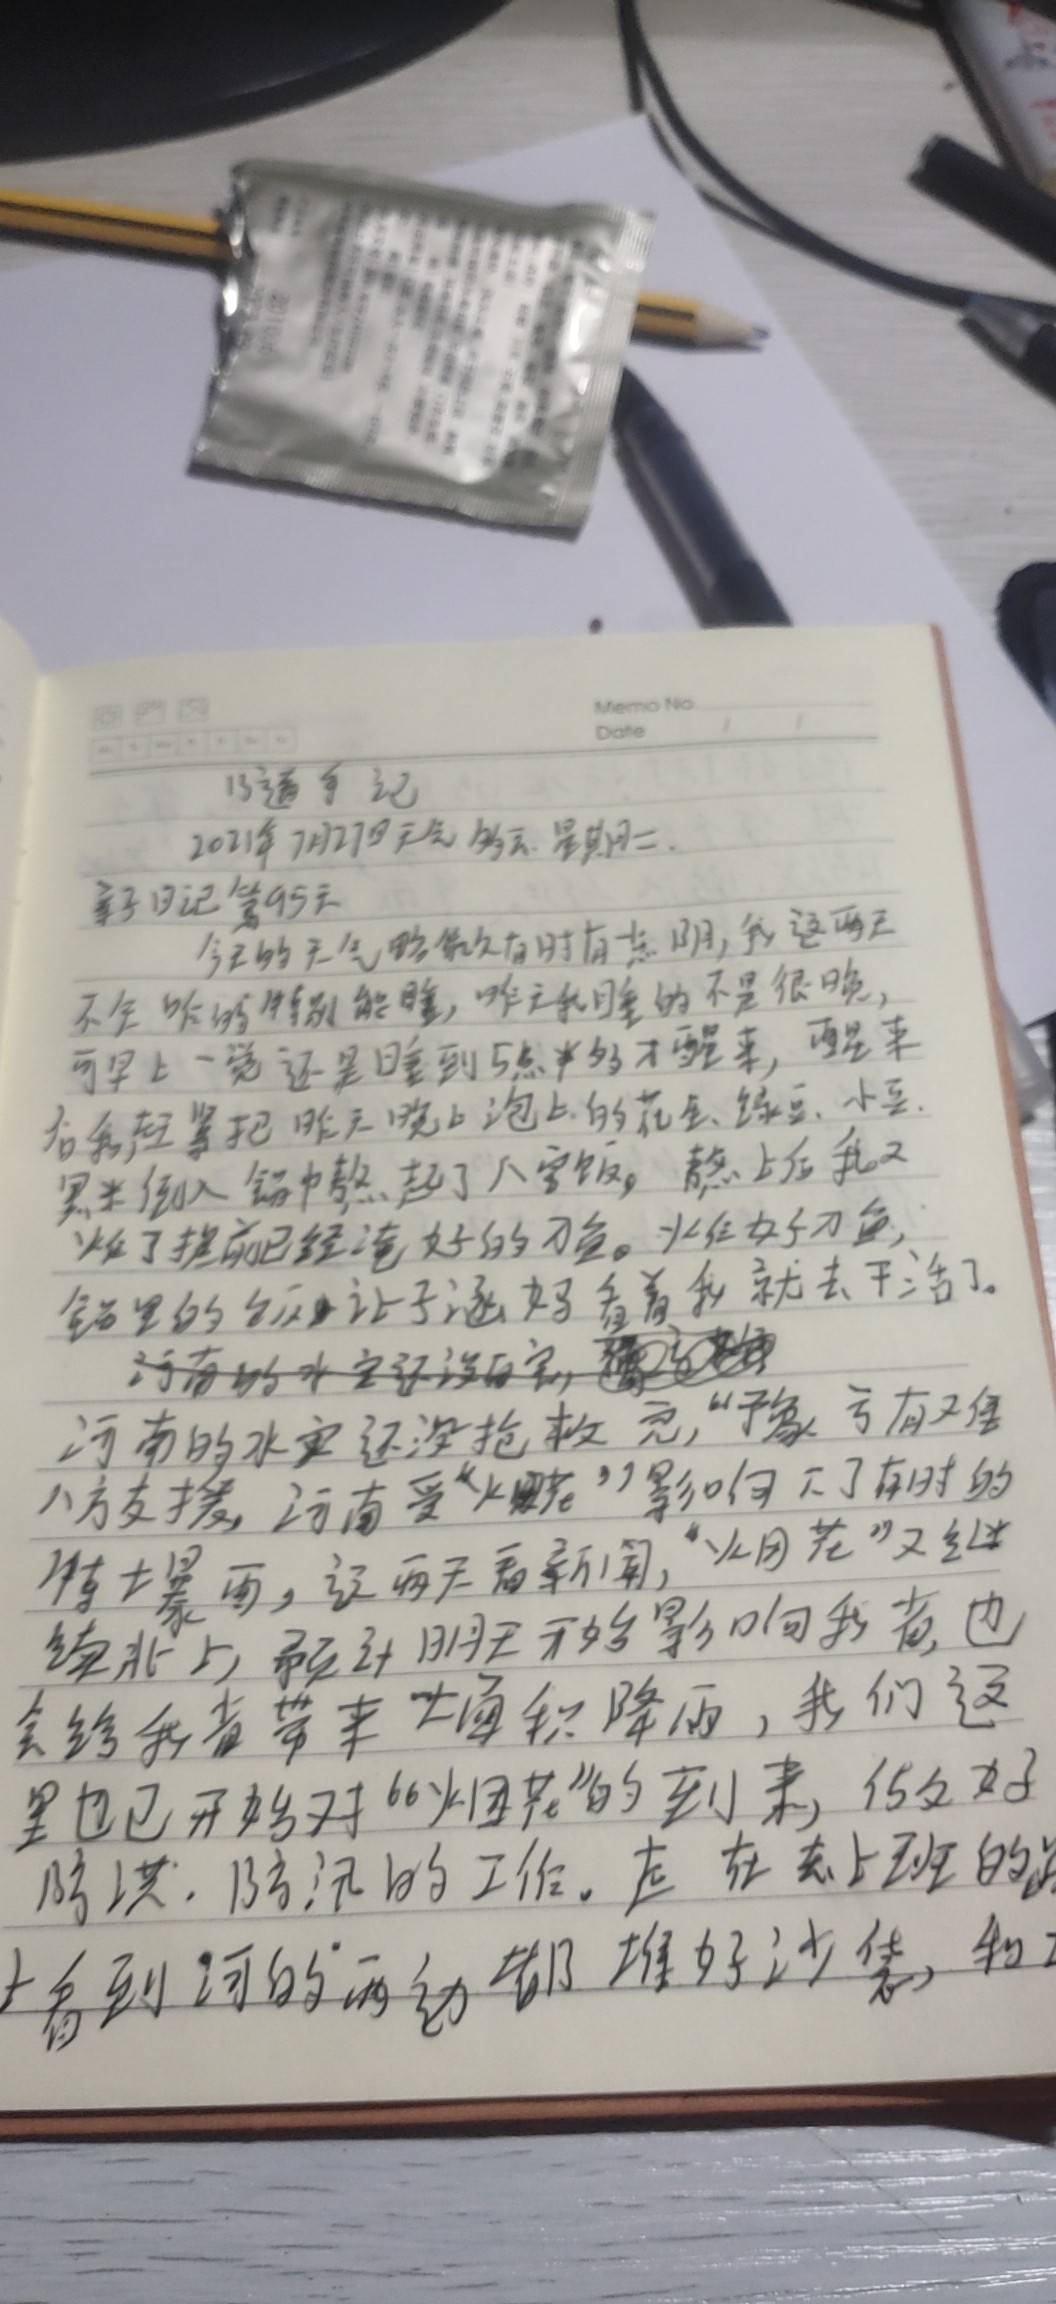 Memo No
Date / /
记
2021年7月27日 天气 多云 星期二.
亲子日记第95天
今天的天气 有时有点阴,我这两天
特别能睡,昨天我睡的不是很晚,
可早上一觉还是睡到5点半多才醒来,醒来
后我赶紧把昨天晚上泡上的花生、绿豆、小豆、
黑米倒入锅中熬起了八宝饭。熬上后我又
炸了提前已经淹好的刀鱼。炸好刀鱼,
锅里的 让子涵好看着我就去干活了。
河南的水灾还没
河南的水灾还没抢救完,“豫”亏有又
八方支援,河南受“烟花”影响 下了有时的
特大暴雨,这两天看新闻,“烟花”又继
续北上,预计明天开始影响我省,也
会给我省带来大面积降雨,我们这
里也已开始对“烟花”的到来,做好
防洪.防汛的工作。 在去上班的路
上看到河的两边都堆好沙袋,和